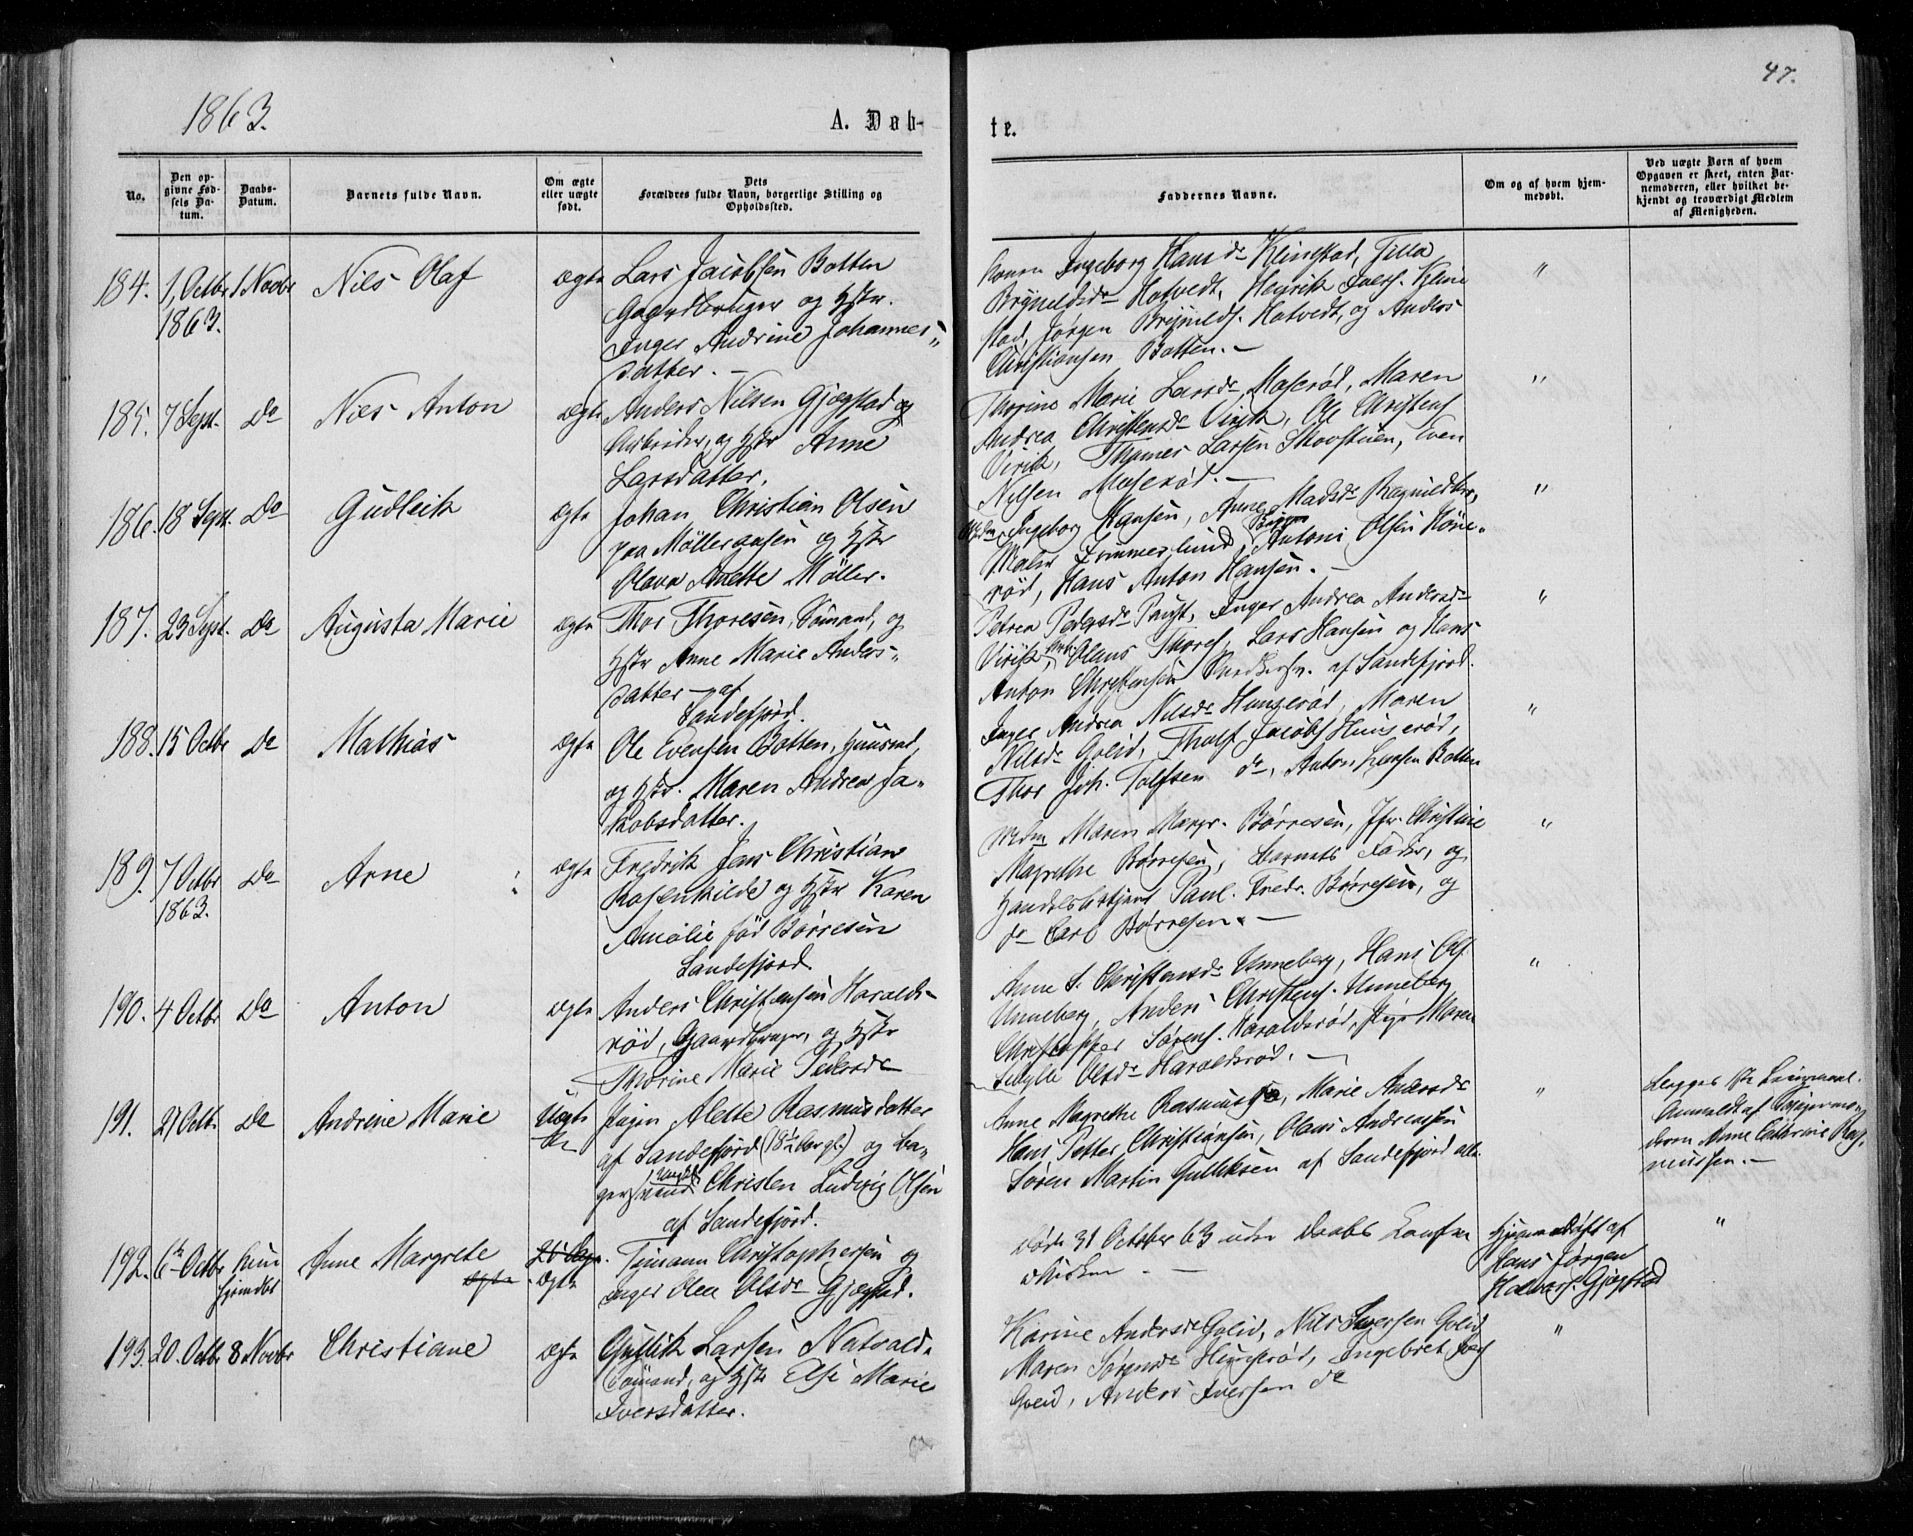 1863.
47.
A. Døb-
te.
No.
Den op-
givne Fød-
sels Da-
tum.
Daabs-
Datum.
Barnets fulde Navn.
Om ægte
eller uægte
født.
Dets
Forældres fulde Navn, borgerlige Stilling og
Opholdssted.
Faddernes Navne.
Om og af hvem hjem-
medøbt.
Ved uægte Børn af hvem
Opgaven er skeet, enten Bar-
nemoderen, eller hvilket be-
kjendt og troværdigt Medlem
af Menigheden.
184. 1. Octbr 1 Novbr Nils Olaf ægte Lars Jacobsen Botten
1863.
Gaardbruger og Hstr.
Inger Andrine Johannes-
datter. -
Konen Ingeborg Hansdr Klinestad, Tilla
Brynildsdr Hotvedt, Henrik Ivers. Kline
stad, Jørgen Brynilds. Hotvedt, og Anders
Christiansen Botten. - "
185. 7 Sept. Do Nils Anton ægte Anders Nilsen Gjøgstad og
Arbeider, og Hstr Anne
Larsdatter.
Thorine Marie Larsdr Moserød, Maren
Andrea Christensdr Virik, Ole Christens
Virik, Thomes Larsen Skovstuen, Even
Nilsen Moserød. - "
186. 18 Sept. Do Gudleik ægte Johan Christian Olsen
paa Møllergaasen og Hstr
Olava Anette Møller.
Ingeborg Hansen, Anne Madsdr Ragnildsr,
Maler Fommeslund, Antoni Olsen Høne-
rød, Hans Anton Hansen. - "
187. 23 Sept. Do Augusta Marie ægte Thor Thoresen, Sømand, og
Hstr Anne Marie Anders-
datter - af
Sandefjord.
Petrea Pedersdr Pugt, Inger Andrea Andersdr
Virik, Olaus Thores, Lars Hansen og Hans
Anton Christensen af Sandefjord. "
188. 15 Octbr Do Mathias ægte Ole Evensen Botten, Huusmd,
og Hstr. Maren Andrea Ja-
kobsdatter.
Inger Andrea Nilsdr Hunserød, Maren
Nilsdr Golid, Tholf Jacobs Hunserød,
Thor Joh. Tolfsen do, Anton Larsen Botten "
189. 7 Octbr Do Arne ægte Fredrik Jens Christian
1863.
Rosenkilde og Hstr Karen
Amalie fød Børresen
Sandefjord.
Mdm Maren Margr. Børresen, Jfr. Christine
Magrethe Børresen, Barnets Fader, og
Handelsbetjent Paul. Fredr. Børresen, og
do Carl Børresen. - "
190. 4 Octbr Do Anton ægte Anders Christensen Haralds-
rød, Gaardbruger, og Hstr
Thorine Marie Pedersdr
Anne S. Christensdr Unneberg, Hans Ols
Unneberg, Anders Christens. Unneberg,
Christopher Sørens. Haraldsrød, Pige Maren
Sibylle Olsdr Haraldsrød. - "
191. 27 Octb. Do Andrine Marie Uægte Pigen Alette Rasmusdatter
af Sandefjord og Ba-
gersvend Ungkl Christen Ludvig Olsen
af Sandefjord.
Anne Magrethe Rasmussen, Marie Andersdr
Hans Petter Christiansen, Olaus Andreassen
Søren Martin Gulliksen af Sandefjord alle "
Anmeldt af
deren Anne Cathrine Ras-
mussen. -
192. 6te Octbr kun Anne Margrete Tjmann Christophersen og
hjemdbt ægte ægte Inger Olea Olsdr Gjøgstad.
Død 31 October 63 uden Daabs Confirm
i Kirken. - Hjemmedøbt af "
Hans Jørgen
Halvors. Gjøgstad
193. 20. Octbr 8 Novbr Christiane ægte Gullik Larsen Natvald.
Sømand, og Hstr Else Marie
Iversdatter.
Karine Andersdr Golid, Nils Iversen Golid
Maren Sørensdr Hunserød, Ingebret Ivers
Golid, Anders Iversen do "